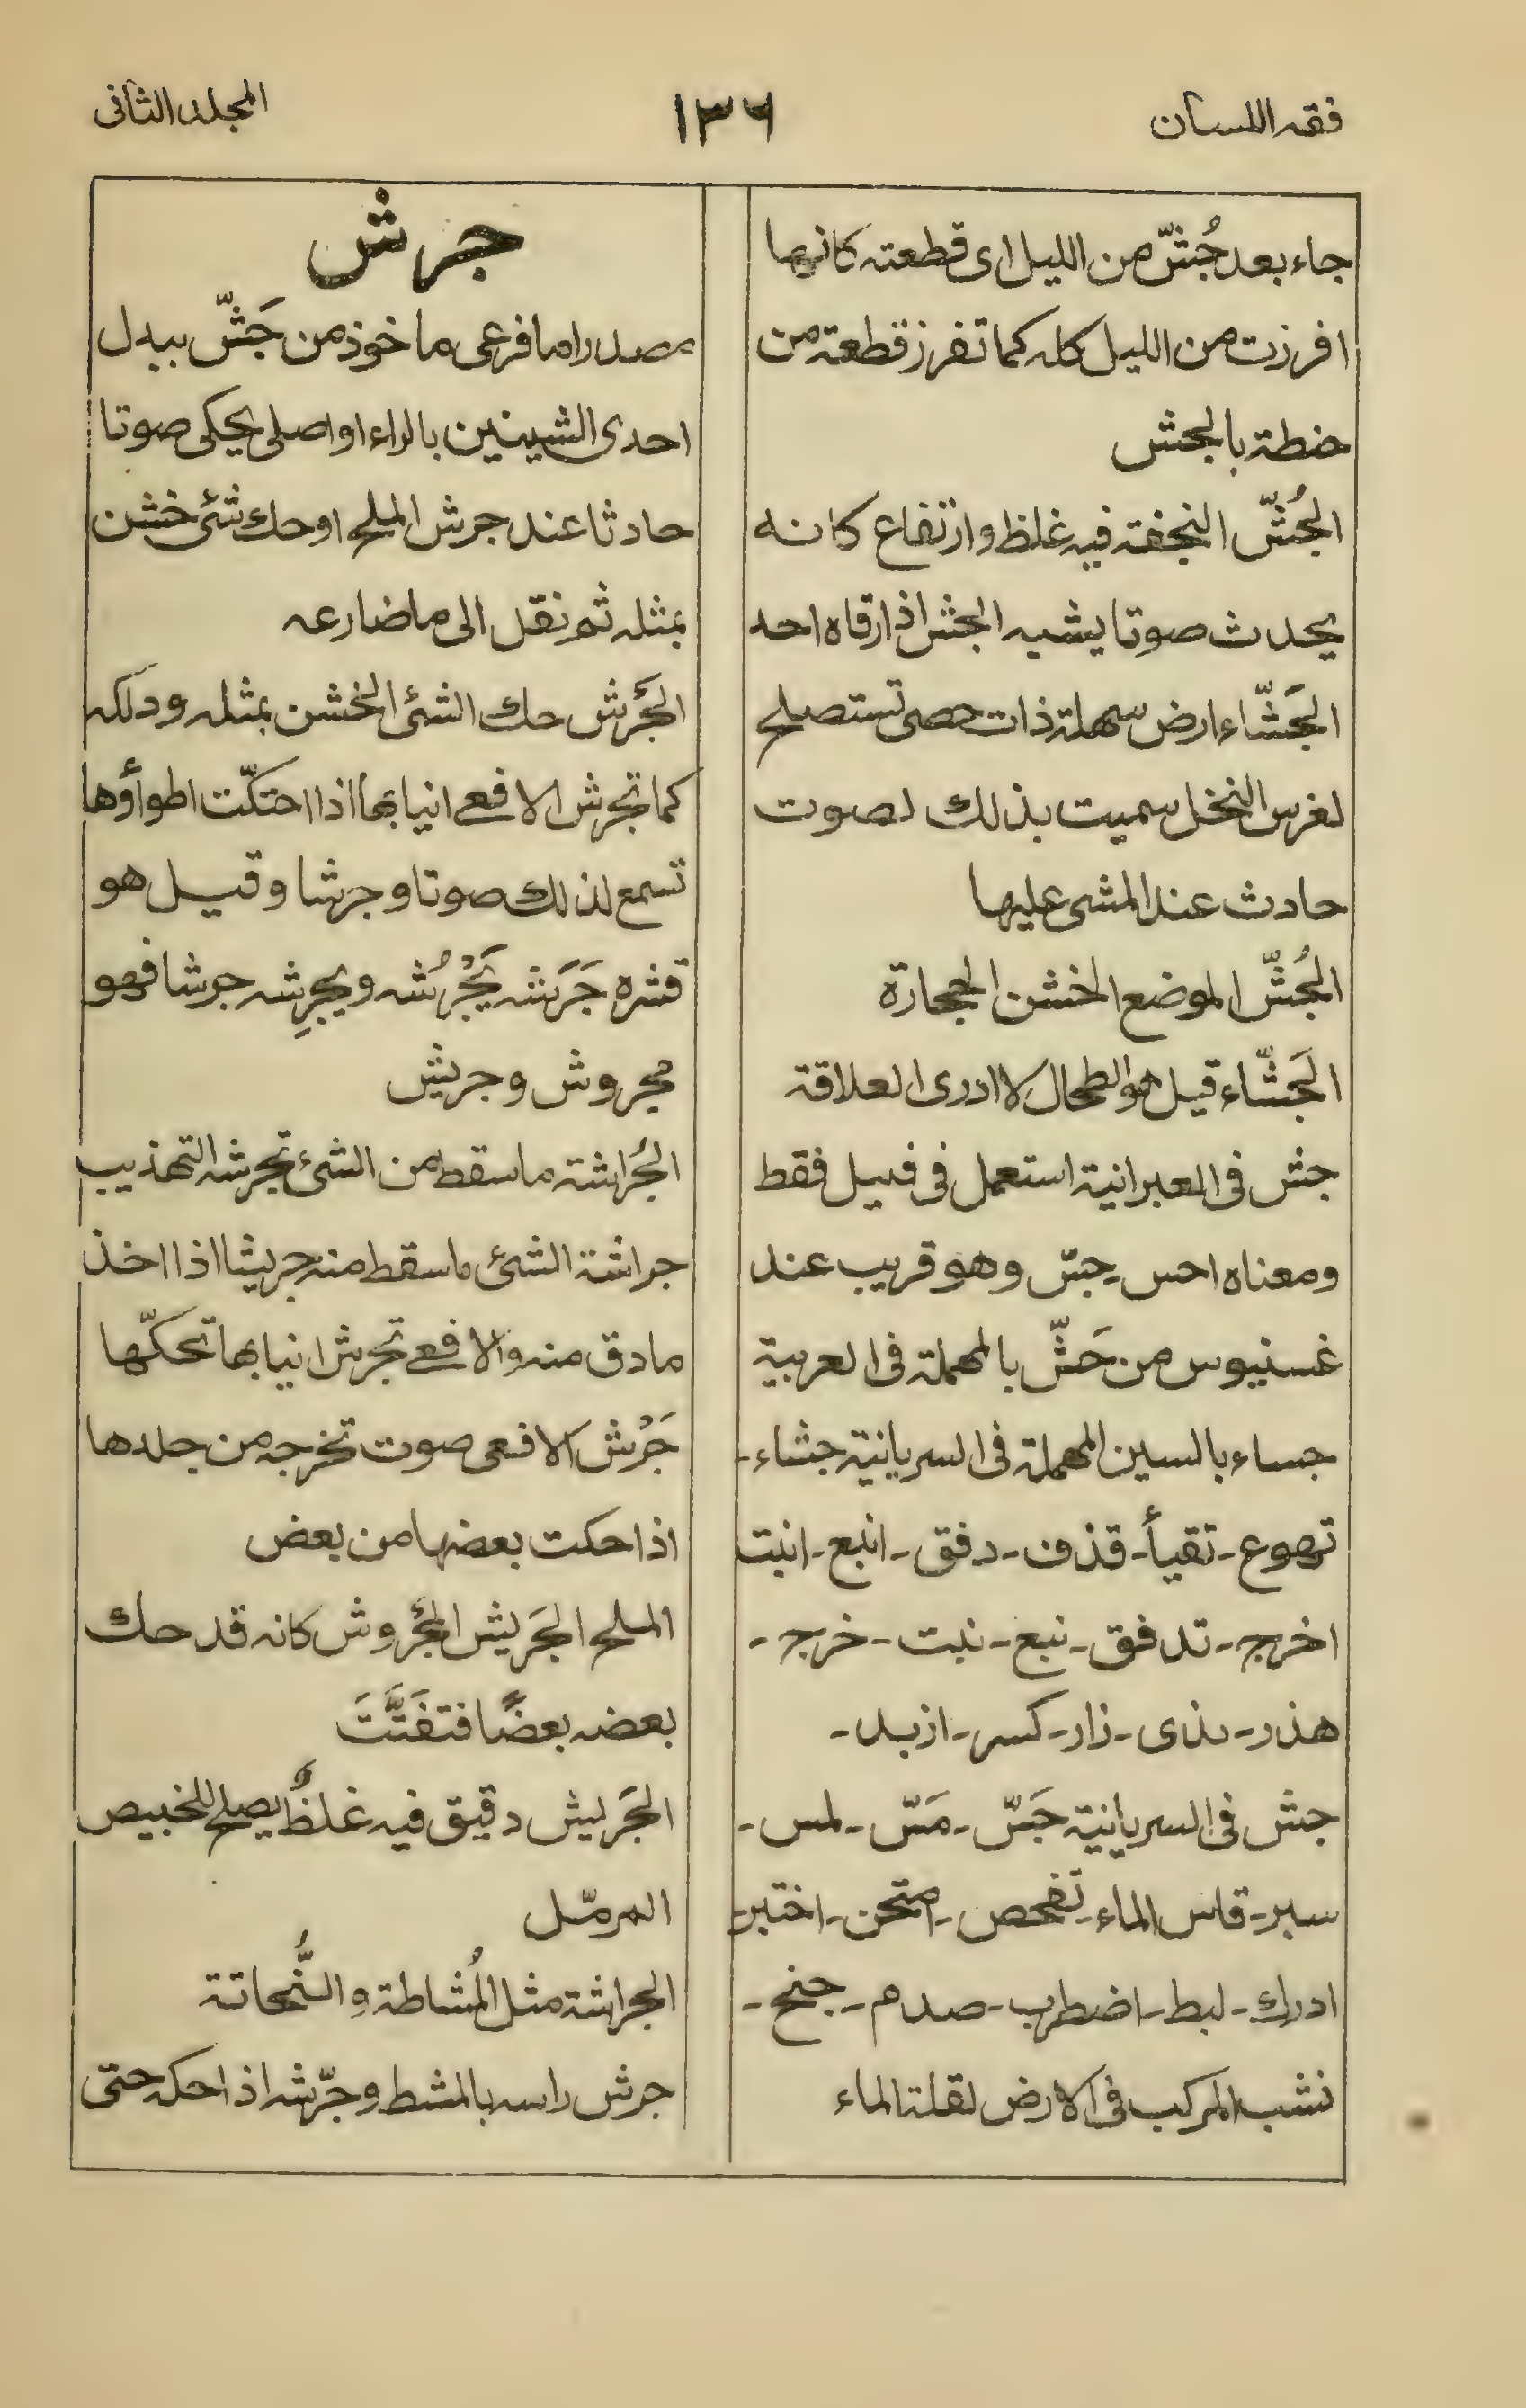 فقه اللسان
١٣٦
المجلد الثانى
جاء بعد جُشّ من الليل اى قطعته كانها
افرزت من الليل كله كما تفرز قطعة من
حنطة بالجش
الجُشّ النجفة فيه غلظ وارتفاع كانه
يحدث صوتا يشبه الجش اذا رقاه احد
الجَشّاء ارض سهلة ذات حصى تستصلح
لغرس النخل سميت بذلك لصوت
حادث عند المشى عليها
الجُشّ الموضع الخشن الحجارة
الجَشّاء قيل هو الطحال لا ادرى العلاقة
جش فى العبرانية استعمل فى فيل فقط
ومعناه احس جسّ وهو قريب عند
غسنيوس من حَشّ بالمهملة فى العربية
جساء بالسين المهملة فى السريانية جشاء -
تهوع - تقيأ - قذف - دفق - انبع - انبت
اخرج - تدفق - نبع - نبت - خرج -
هذر - بذى - زار - كسر - ازبد -
جش فى السريانية جَسّ - مَسّ - لمس -
سبر - قاس الماء - تفحص - امتحن - اختبر -
ادرك - لبط - اضطرب - صدم - جنح -
نشب المركب فى الارض لقلة الماء
جرش
مصدر اما فرعى ماخوذ من جَشّ ببدل
احدى الشينين بالراء او اصلى يحكى صوتا
حادثا عند جرش الملح او حك شئ خشن
بمثله ثم نقل الى ما ضارعه
الجَرْش حك الشئ الخشن بمثله ودلكه
كما تجرش الافعى انيابها اذا احتكّت اطواؤها
تسمع لذلك صوتا وجرشا وقيل هو
قشره جَرَشه يَجْرُشه ويجرِشه جرشا فهو
مجروش وجريش
الجُراشة ما سقط من الشئ تجرشه التهذيب
جراشة الشئ ما سقط منه جريشا اذا اخذ
ما دق منه والافعى تجرش انيابها تحكّها
جَرْش الافعى صوت تخرجه من جلدها
اذا حكت بعضها من بعض
الملح الجَريش المجْروش كانه قد حك
بعضه بعضًا فتفَتَّتَ
الجَريش دقيق فيه غلظٌ يصلح للخبيص
المرمّل
الجراشة مثل المُشاطة والنُّحاتة
جرش راسه بالمشط وجرّشه اذا حكه حتى